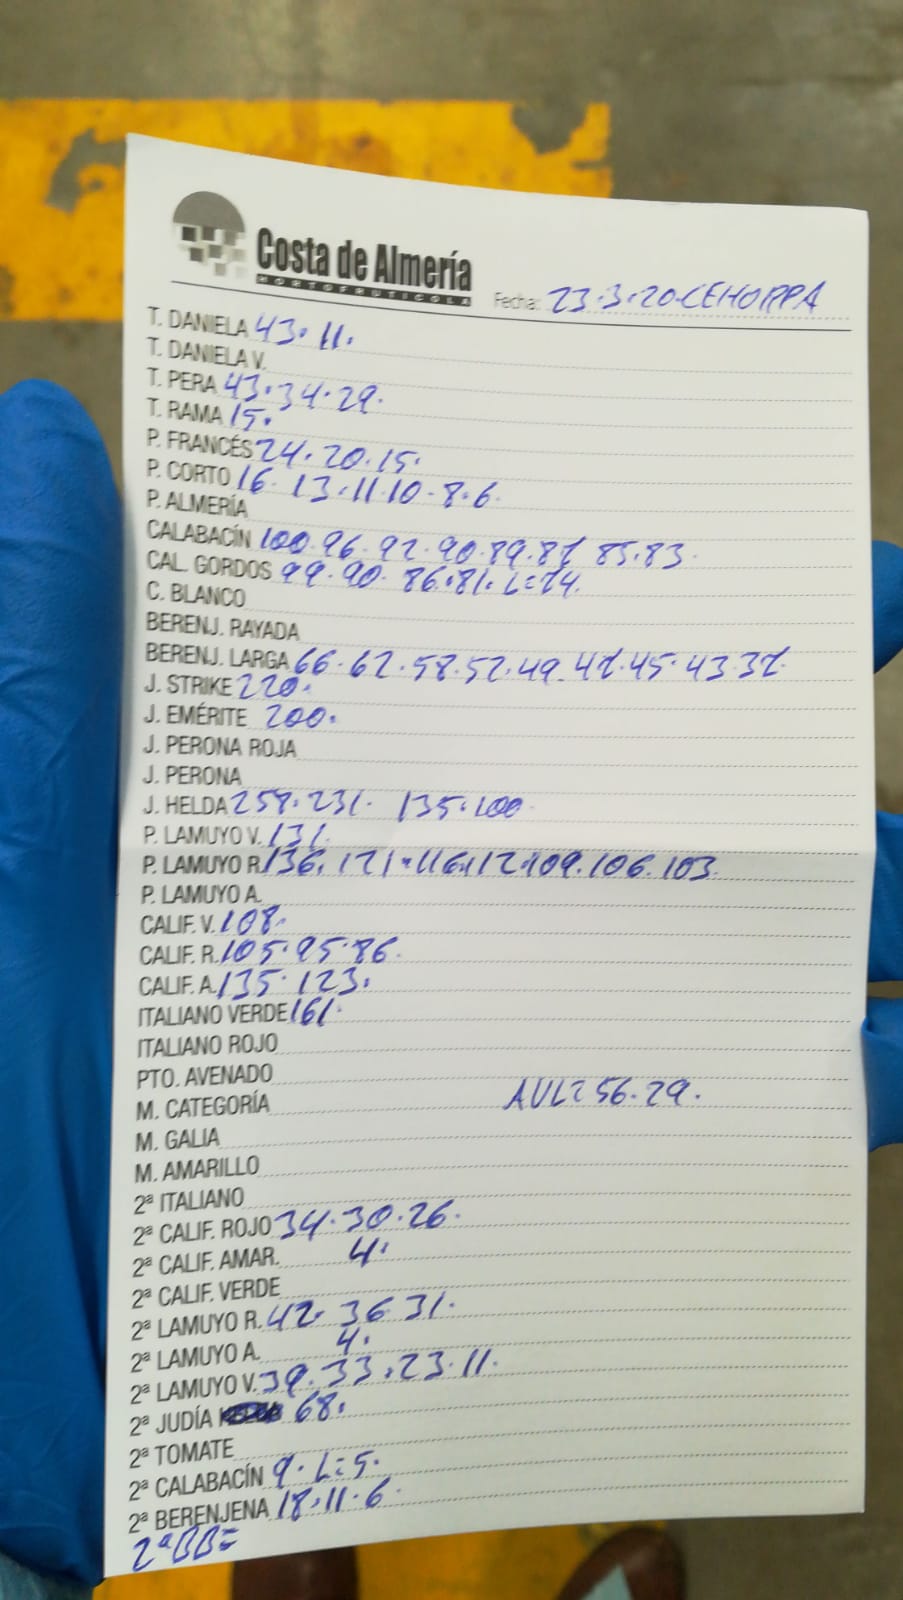 Costa de Almería
HORTOFRUTICOLA
Fecha: 23.3.20.CEHORPA
T. DANIELA 43. 11.
T. DANIELA V.
T. PERA 43.34.29.
T. RAMA 15.
P. FRANCÉS 24.20.15.
P. CORTO 16. 13.11.10.8.6.
P. ALMERÍA
CALABACÍN 100.96.92.90.89.87 85.83.
CAL. GORDOS 99.90. 86.81. L=74.
C. BLANCO
BERENJ. RAYADA
BERENJ. LARGA 66.62.58.52.49.47.45.43.37.
J. STRIKE 220.
J. EMÉRITE 200.
J. PERONA ROJA
J. PERONA
J. HELDA 257.231. 135.100.
P. LAMUYO V. 131.
P. LAMUYO R. 136.121.116.112.109.106.103.
P. LAMUYO A.
CALIF. V. 108.
CALIF. R. 105.95.86.
CALIF. A. 135.123.
ITALIANO VERDE 161.
ITALIANO ROJO
PTO. AVENADO
M. CATEGORÍA AUL=56.29.
M. GALIA
M. AMARILLO
2ª ITALIANO
2ª CALIF. ROJO 34.30.26.
2ª CALIF. AMAR. 4.
2ª CALIF. VERDE
2ª LAMUYO R. 42. 36.31.
2ª LAMUYO A. 4.
2ª LAMUYO V. 39.33.23.11.
2ª JUDÍA 68.
2ª TOMATE
2ª CALABACÍN 9. L=5.
2ª BERENJENA 18.11.6.
2ªBB=